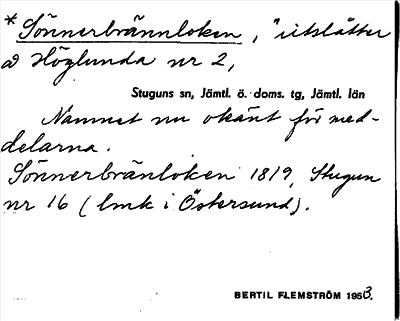 *Sönnerbrännloken, "utslåtter
å Höglunda nr 2,
Stuguns sn, Jämtl. ö. doms. tg, Jämtl. län
Namnet nu okänt för med-
delarna.
Sönnerbränloken 1819, Stugun
nr 16 (lmk i Östersund).
BERTIL FLEMSTRÖM 1953.